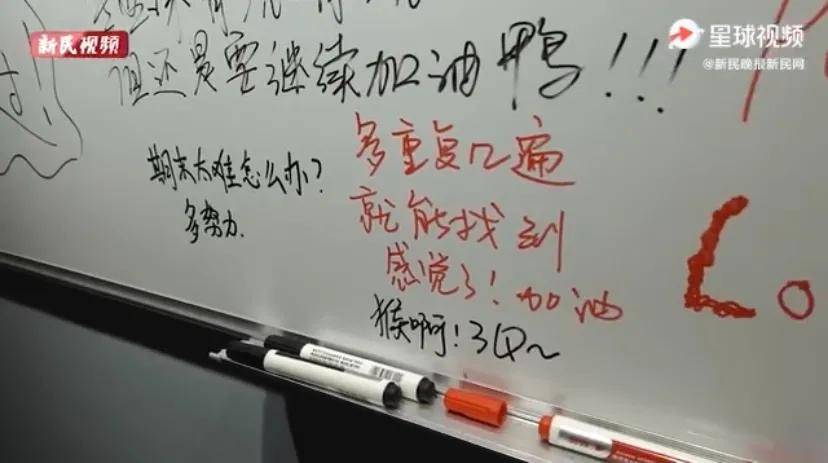 新民视频
星球视频
@新民晚报新民网
但还是要继续加油鸭!!!
期末太难怎么办?
多努力
多重复几遍
就能找到
感觉了!加油
猴啊!3Q~